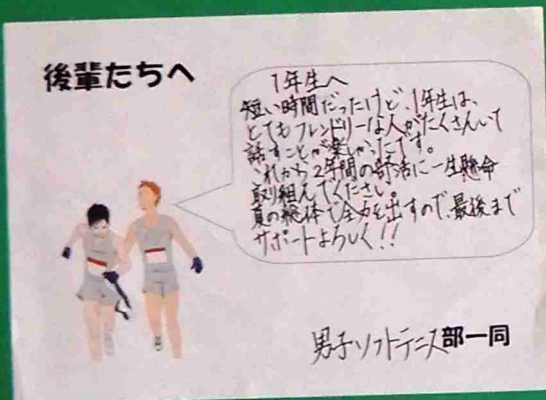 後輩たちへ
1年生へ
短い時間だったけど、1年生は、
とてもフレンドリーな人がたくさんいて
話すことが楽しかったです。
これから2年間の部活に一生懸命
取り組んでください。
夏の総体で全力を出すので、最後まで
サポートよろしく!!
男子ソフトテニス部一同